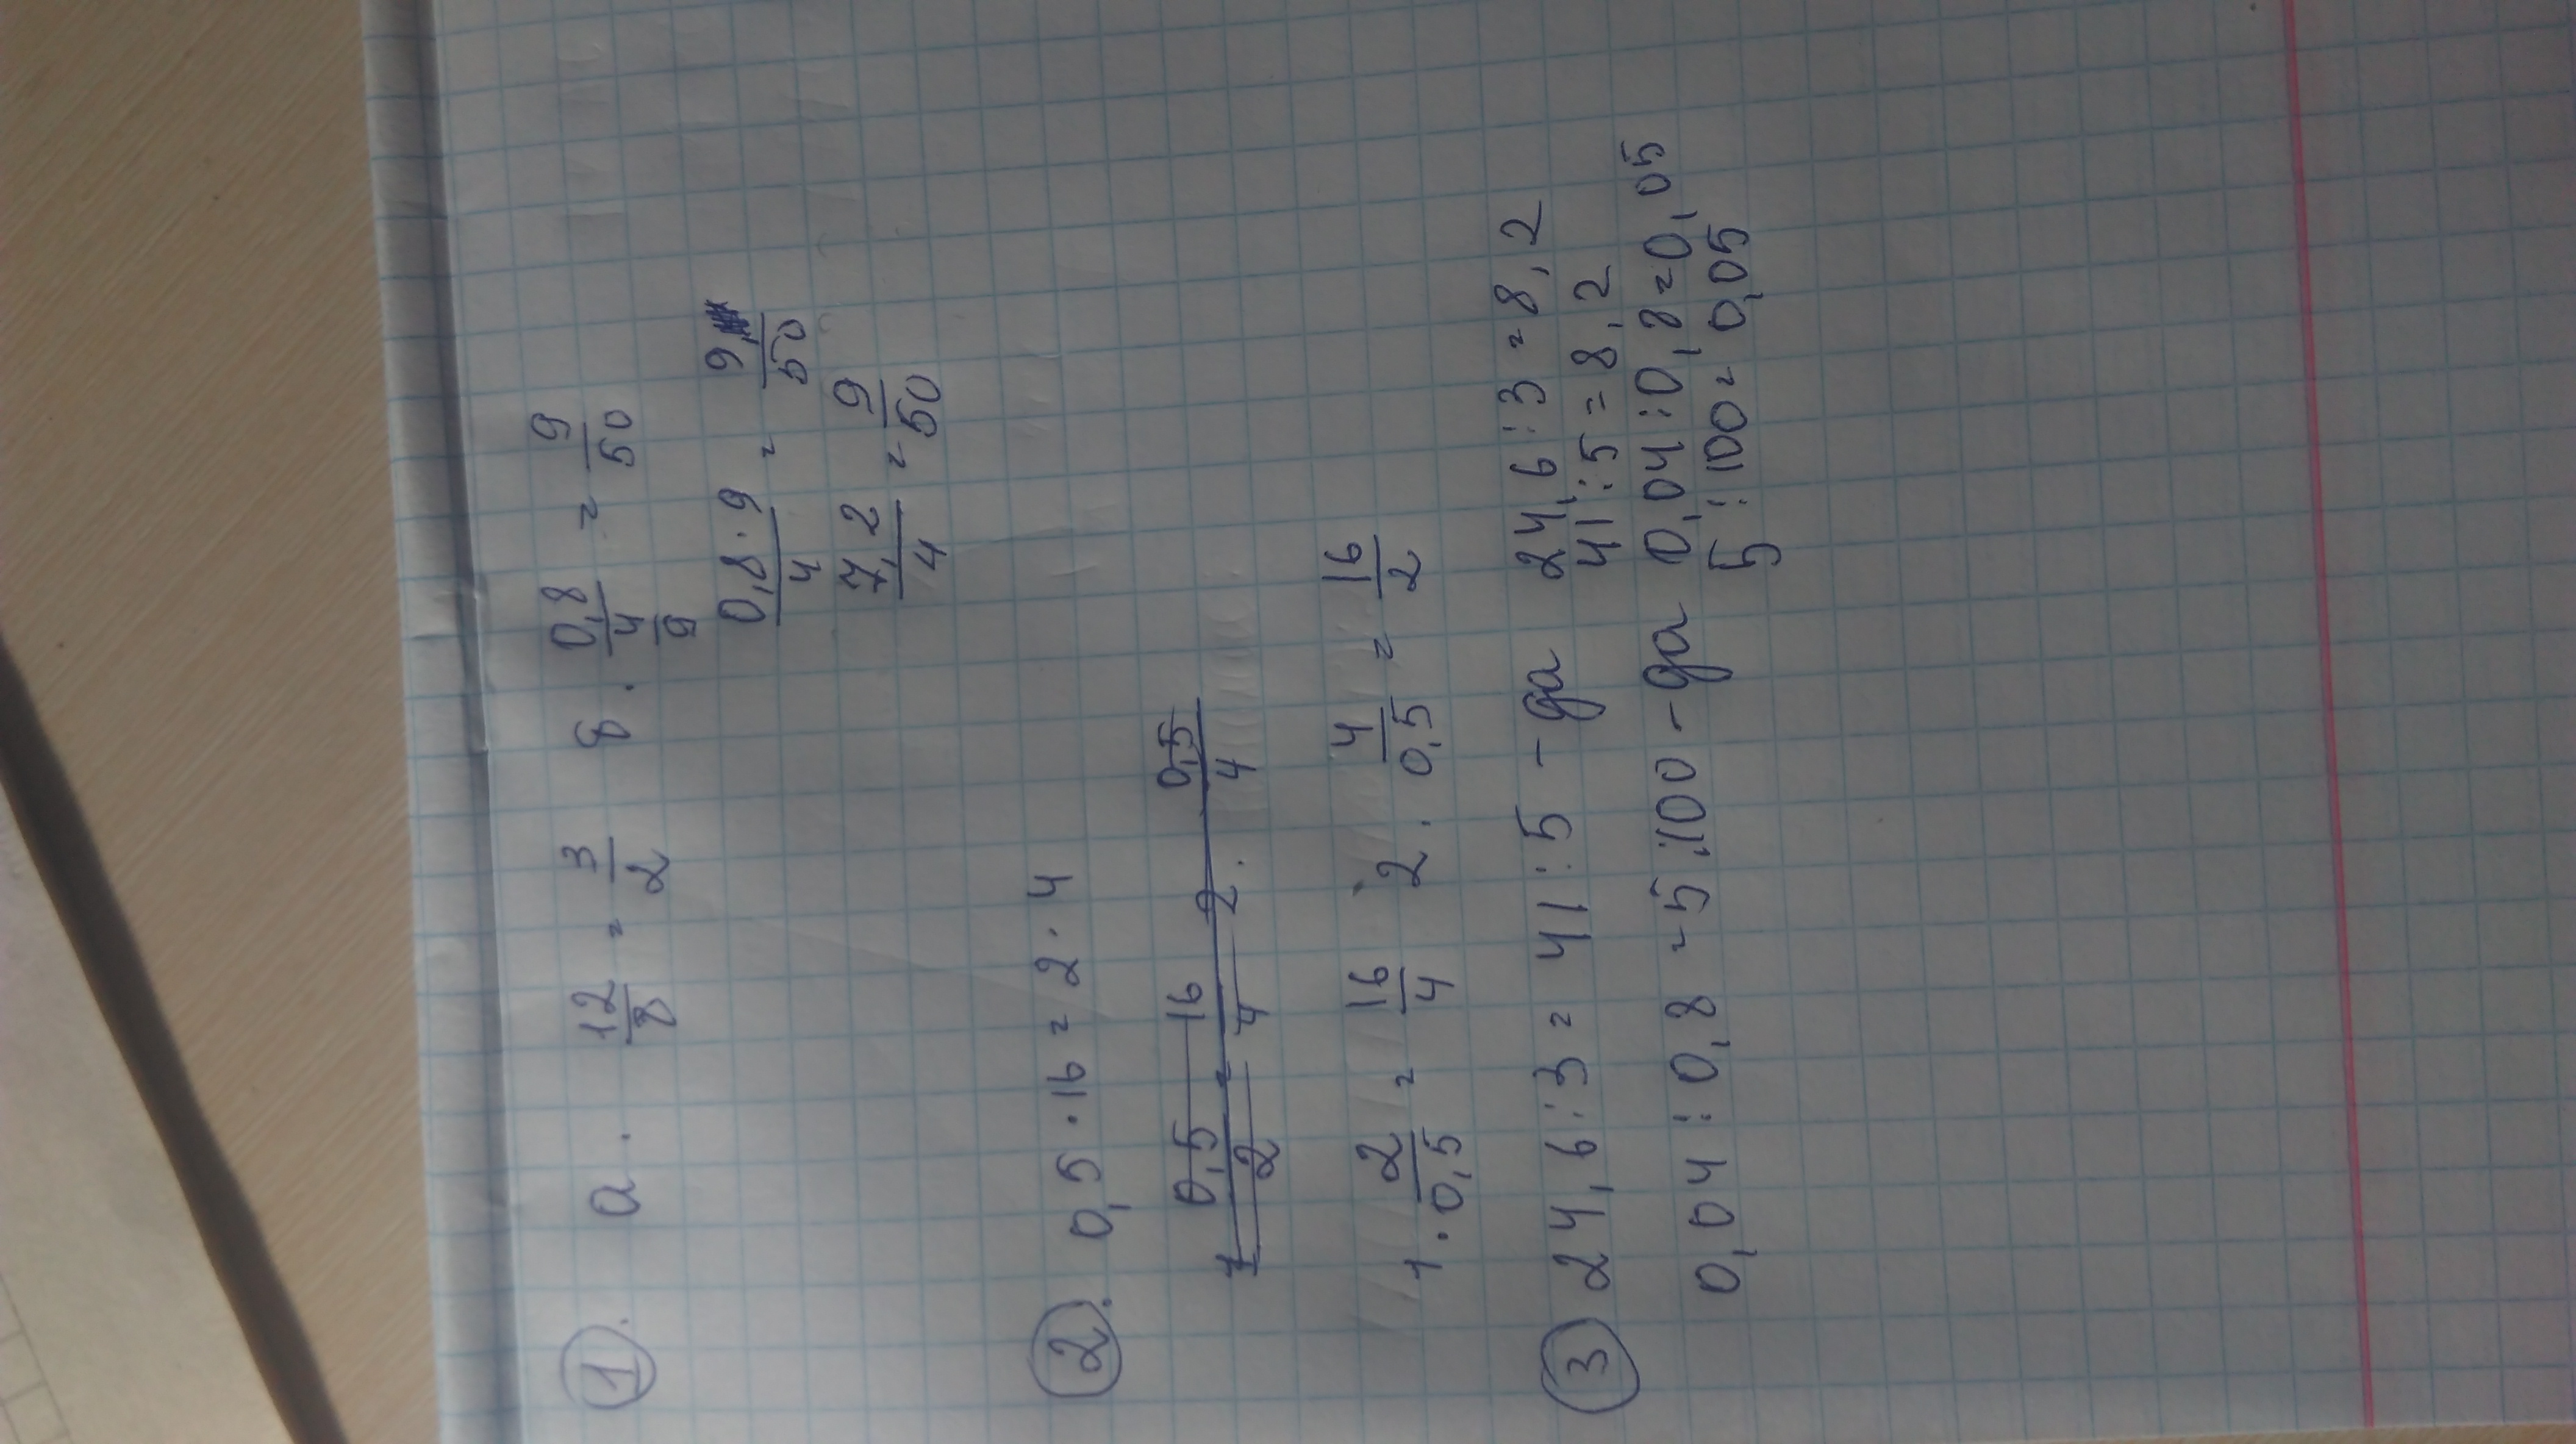 1. а. 12/8 = 3/2 в. 0,8/4/9 = 9/50
0,8·9/4 = 9/50
7,2/4 = 9/50
2. 0,5·16 = 2·4
1 0,5/2 = 16/4 2. 0,5/4
1. 2/0,5 = 16/4 2. 4/0,5 = 16/2
3 24,6:3 = 41:5 - да 24,6:3 = 8,2
41:5 = 8,2
0,04:0,8 = 5:100 - да 0,04:0,8 = 0,05
5:100 = 0,05